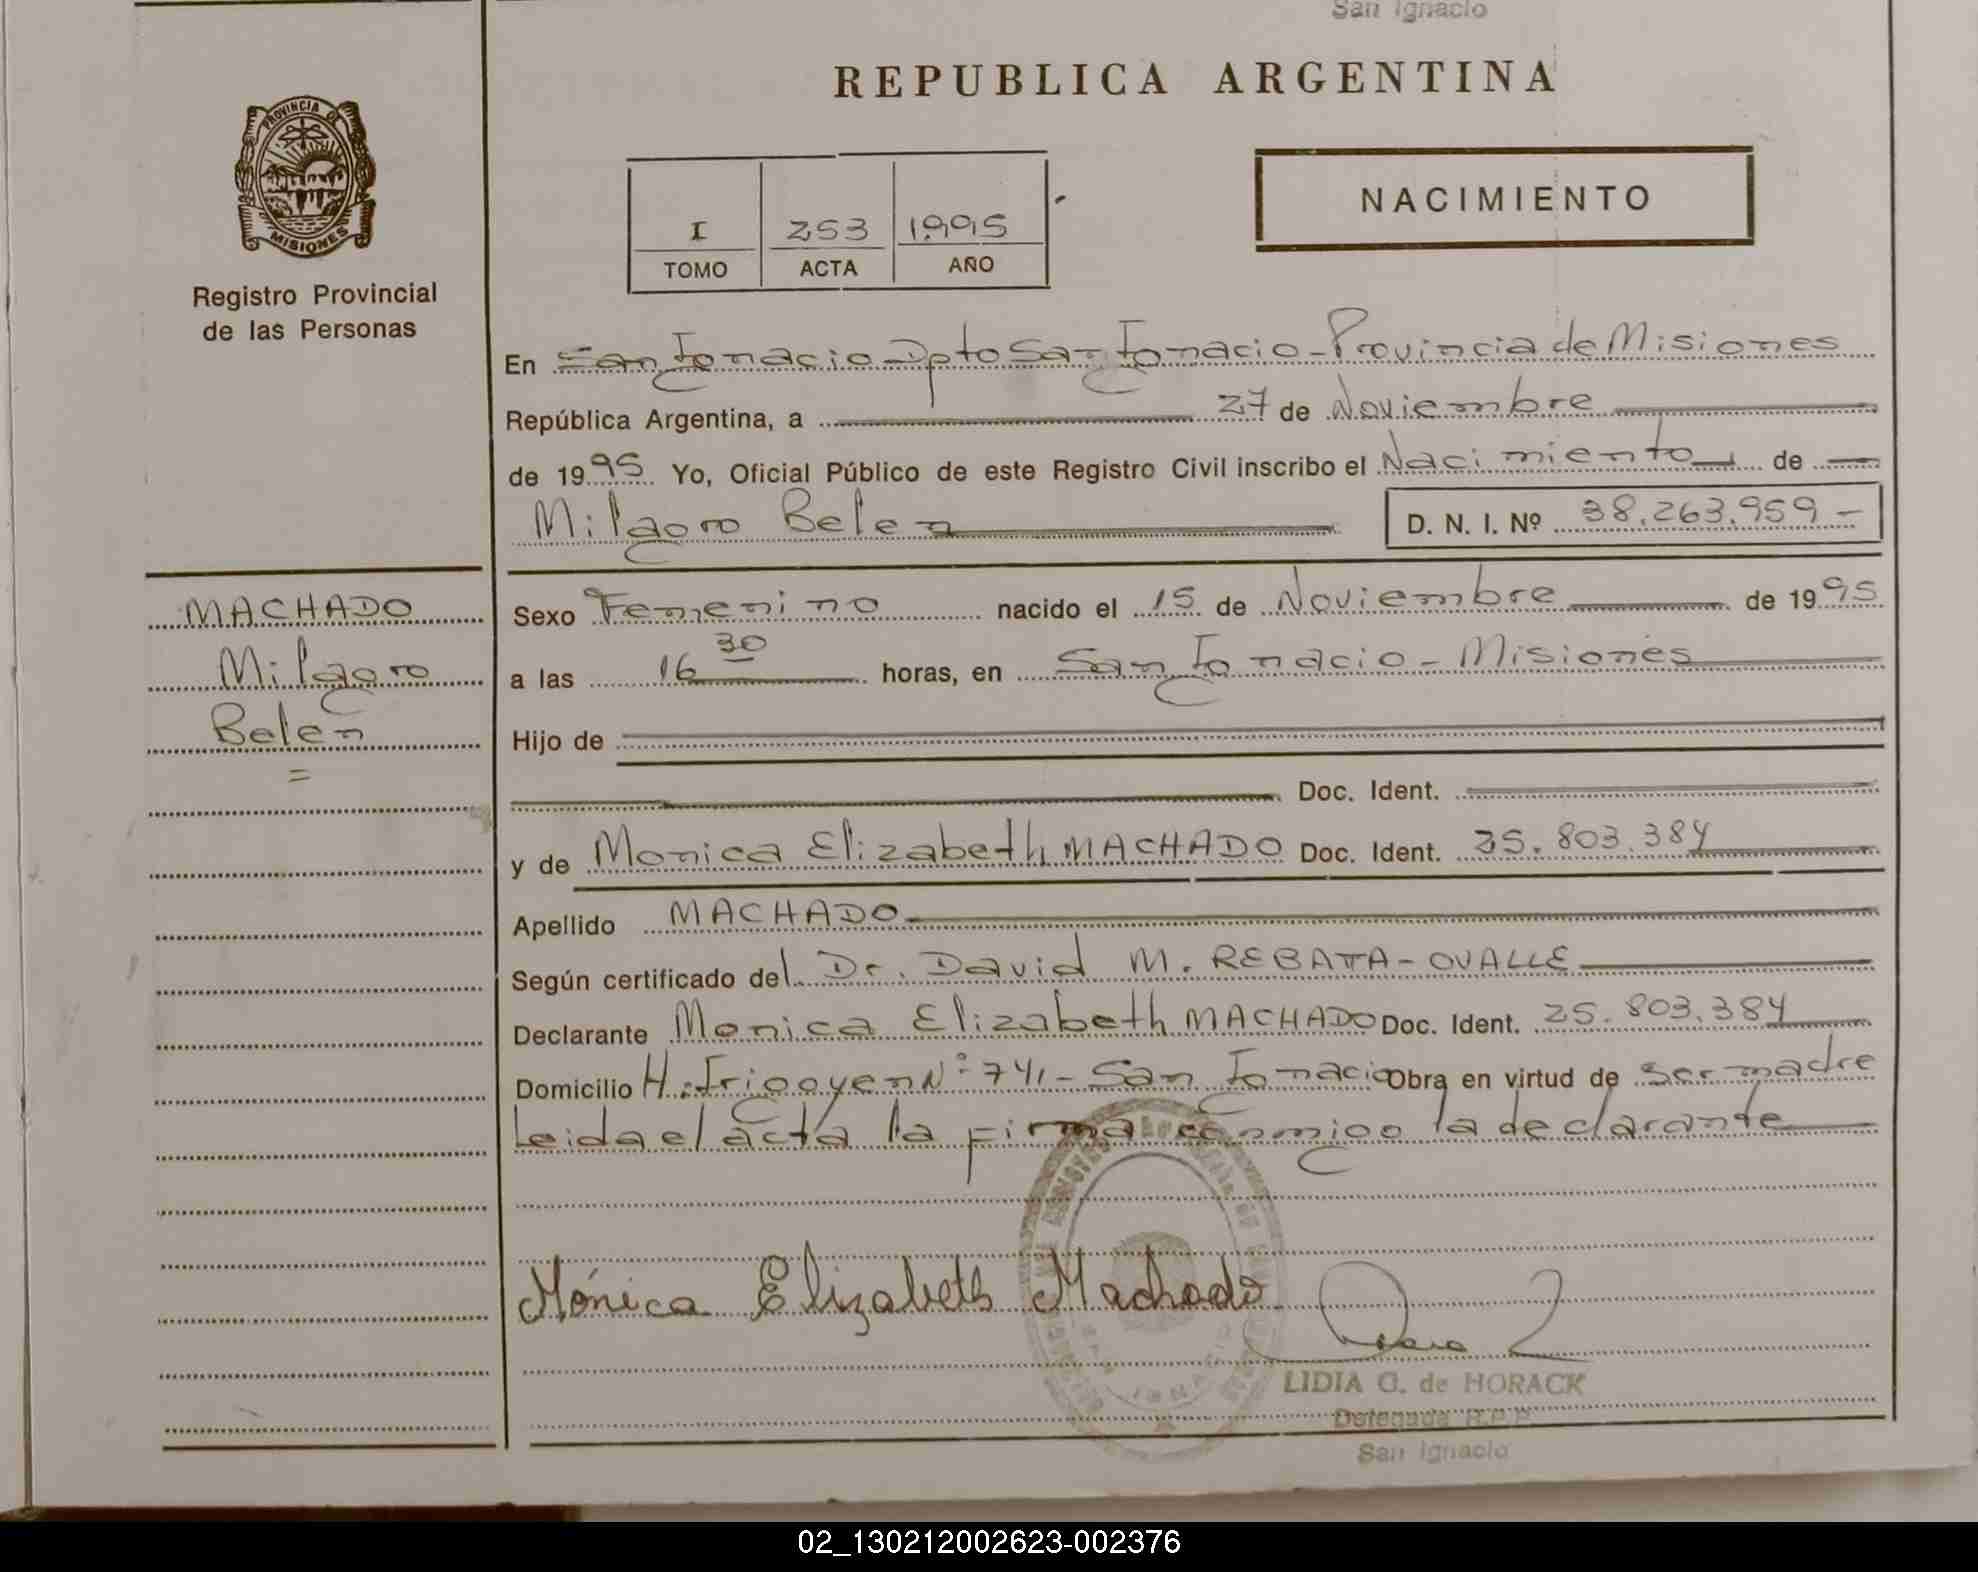 San Ignacio
REPUBLICA ARGENTINA
PROVINCIA DE
MISIONES
Registro Provincial
de las Personas
NACIMIENTO
I 253 1995
TOMO ACTA AÑO
En San Ignacio - Dpto San Ignacio - Provincia de Misiones
República Argentina, a 27 de Noviembre
de 1995 Yo, Oficial Público de este Registro Civil inscribo el Nacimiento de
Milagro Belen D. N. I. Nº 38.263.959 -
MACHADO
Milagro
Belen
=
Sexo Femenino nacido el 15 de Noviembre de 1995
a las 16 30 horas, en San Ignacio - Misiones
Hijo de
Doc. Ident.
y de Monica Elizabeth MACHADO Doc. Ident. 25.803.384
Apellido MACHADO
Según certificado del Dr. David M. REBATTA - OVALLE
Declarante Monica Elizabeth MACHADO Doc. Ident. 25.803.384
Domicilio H. Irigoyen Nº 741 - San Ignacio Obra en virtud de ser madre
Leida el acta la firma conmigo la declarante
Mónica Elizabeth Machado
SAN IGNACIO
LIDIA G. de HORACK
Delegada R.P.P.
San Ignacio
02_130212002623-002376